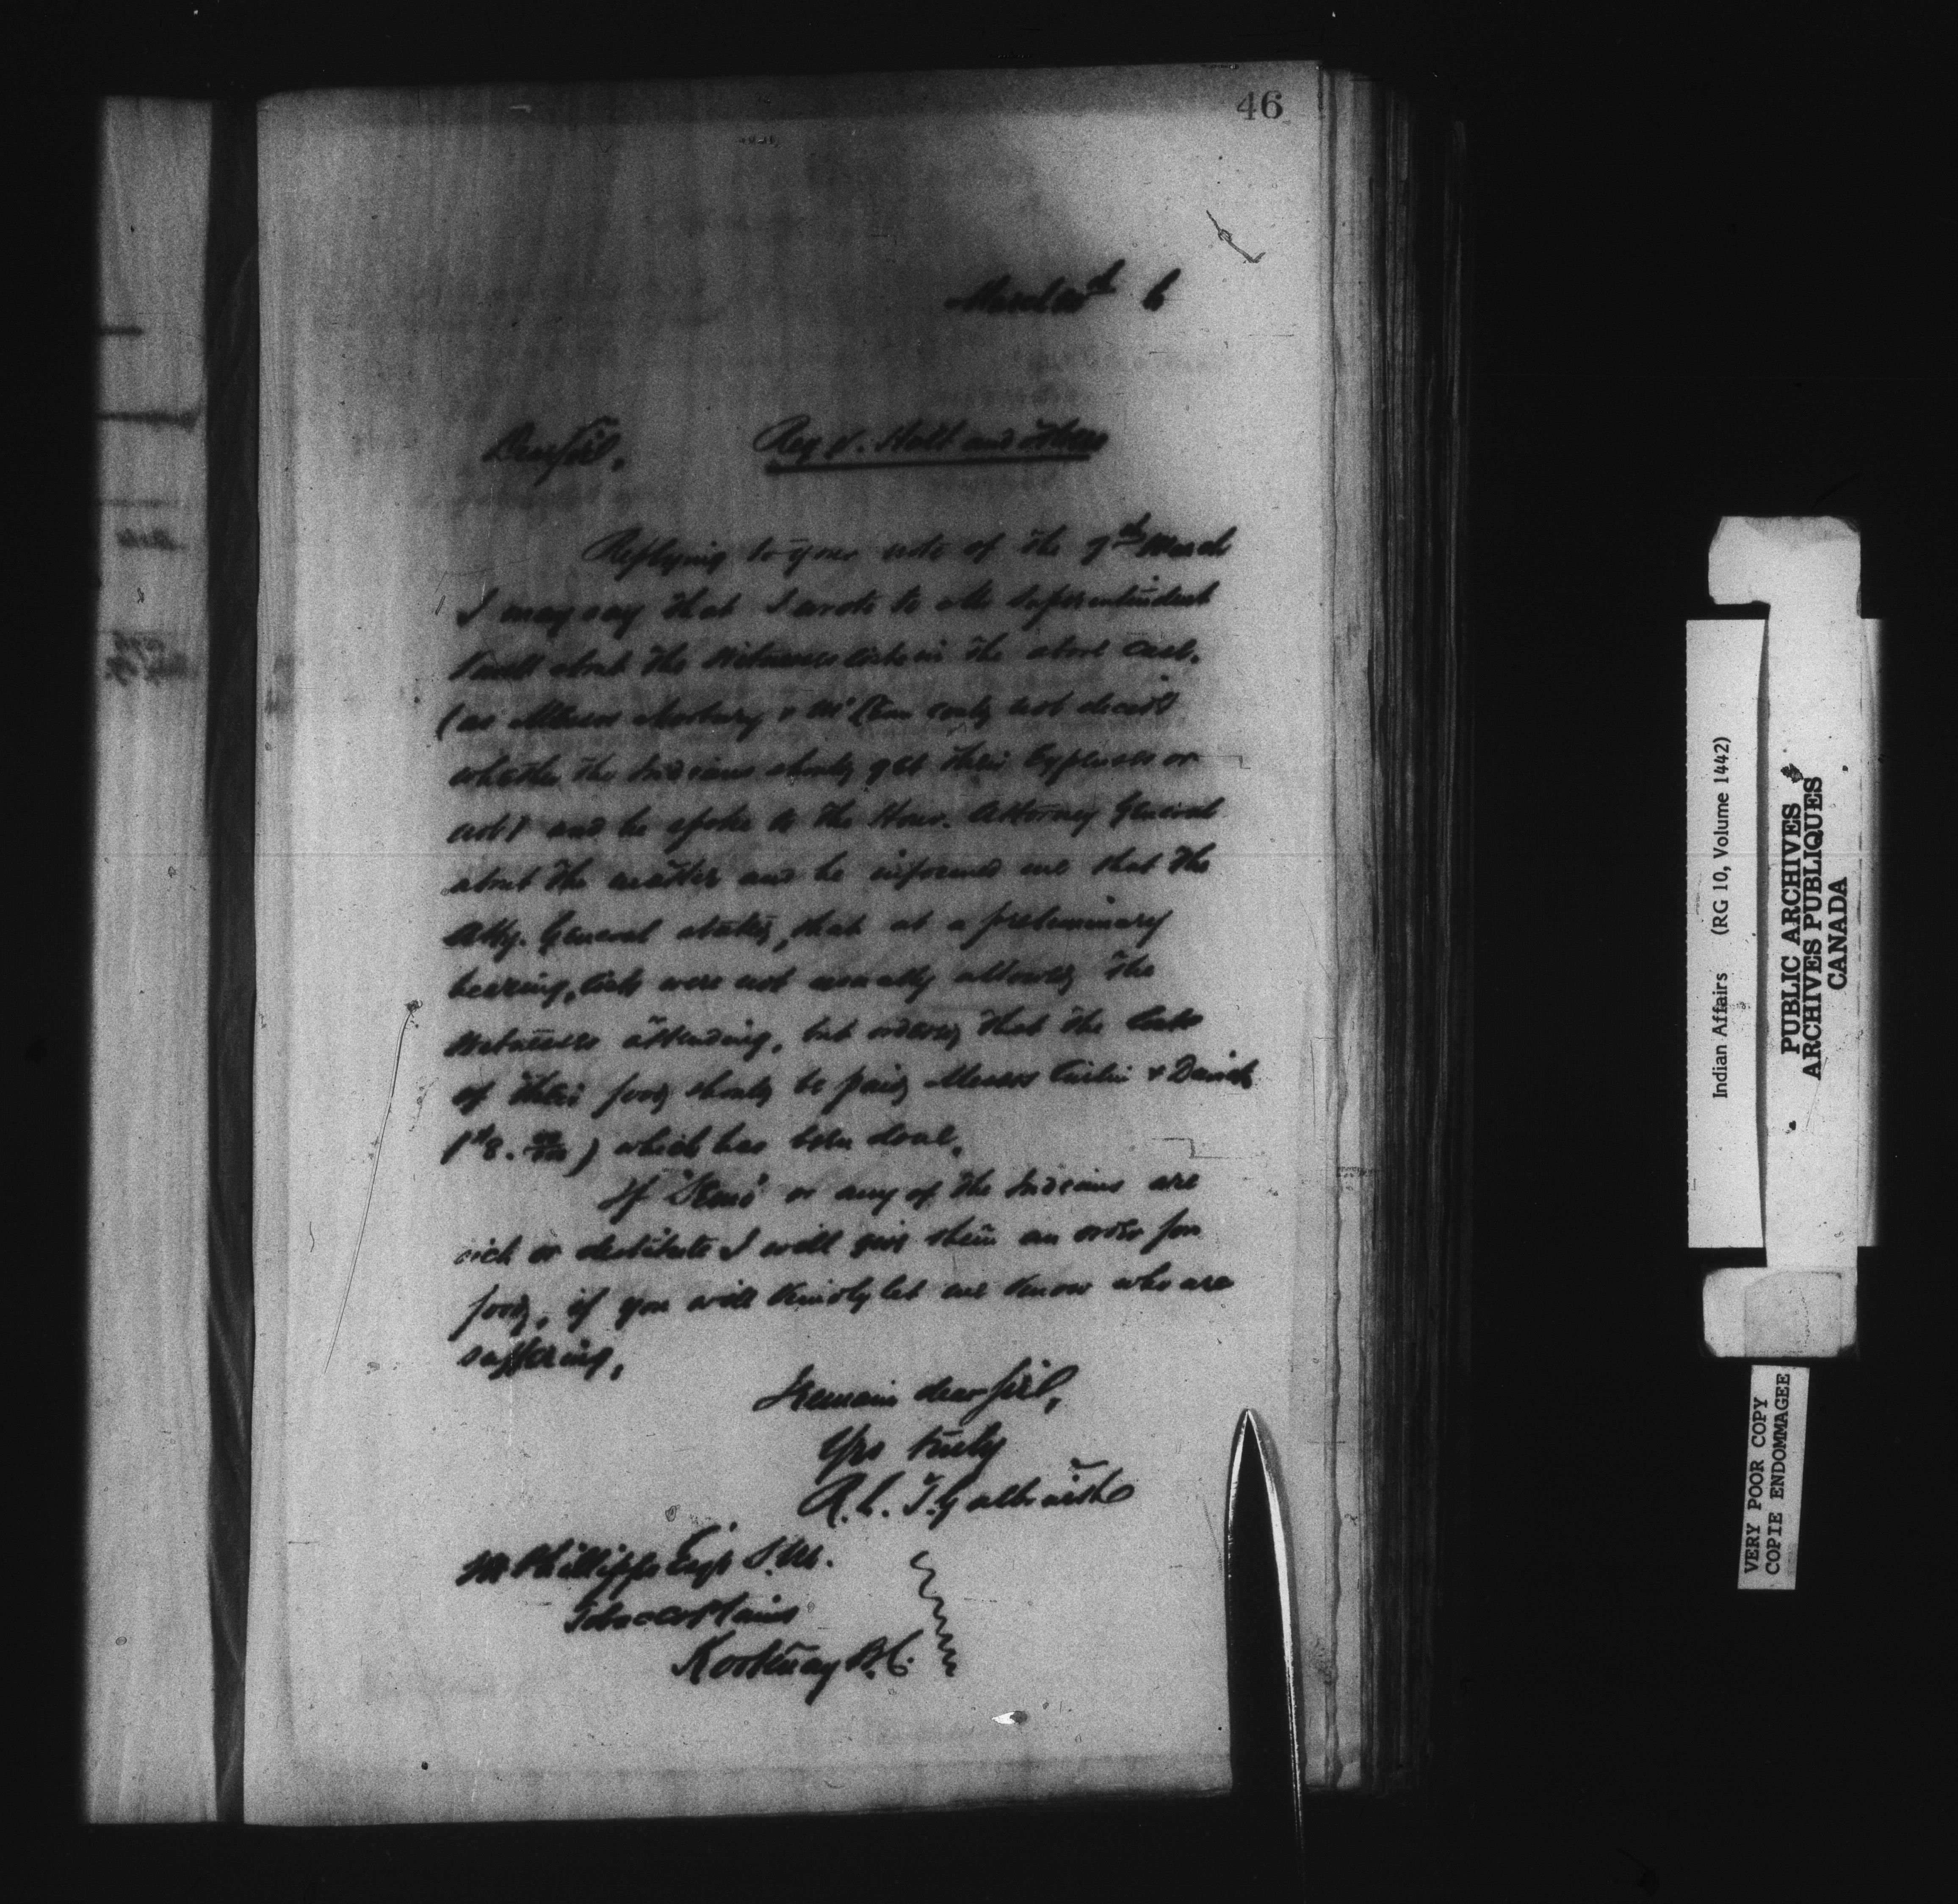 46
March th 6
Dear Sir, Reg v. Hall and others
Replying to your note of the 9th March
I may say that I wrote to the Superintendent
about the Witnesses in the above case.
(as Messrs Norbury & could not decide
whether the Indians should get their Expenses or
not) and he spoke to the Hon. Attorney General
about the matter and he informed me that the
Atty. General stated, that at a preliminary
hearing, were not usually allowed the
Witnesses attending, but ordered that the Cost
of their food should be paid Messrs Carlin &
which has been done.
If or any of the Indians are
sick or destitute I will give them an order for
food, if you will Kindly let me know who are
suffering,
I remain dear Sir,
Yrs truly
R. L. T. Galbraith
M Phillipps Esqr
Tobacco Plains
Kootenay B.C.
Indian Affairs (RG 10, Volume 1442)
PUBLIC ARCHIVES
ARCHIVES PUBLIQUES
CANADA
VERY POOR COPY
COPIE ENDOMMAGEE